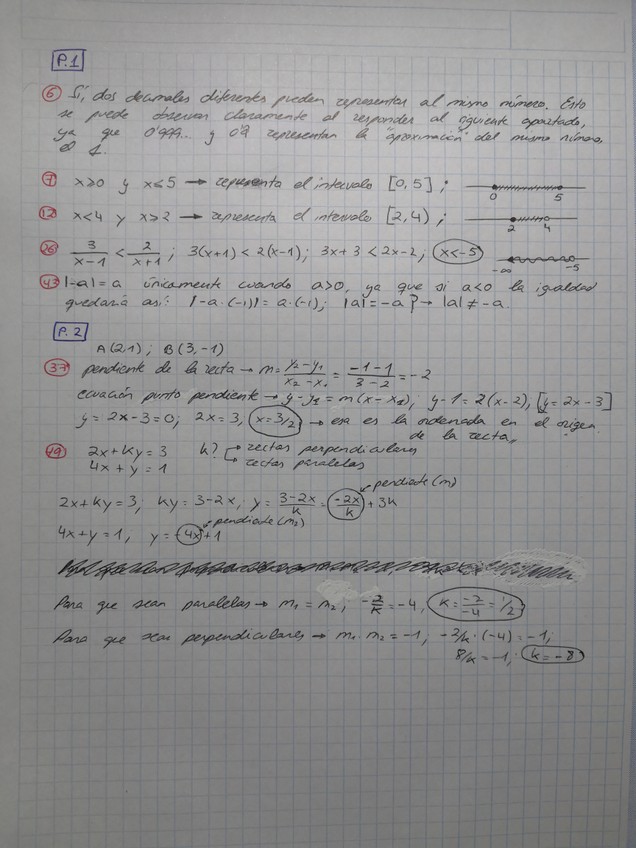 P.1
6 Sí, dos decimales diferentes pueden representar al mismo número. Esto
se puede observar claramente al responder al siguiente apartado,
ya que 0'999... y 0'9 representan la "aproximación" del mismo número,
el 1.
7 x≥0 y x≤5 → representa el intervalo [0,5] ;
0 5
12 x<4 y x≥2 → representa el intervalo [2,4) ;
2 4
26 3/(x-1) < 2/(x+1) ; 3(x+1) < 2(x-1); 3x+3 < 2x-2; x<-5
-∞ -5
43 |-a|=a únicamente cuando a>0, ya que si a<0 la igualdad
quedaría así: |-a·(-1)| = a·(-1); |a|=-a → |a| ≠ -a.
P.2
A(2,1) ; B(3,-1)
37 pendiente de la recta → m = (y₂-y₁)/(x₂-x₁) = (-1-1)/(3-2) = -2
ecuación punto pendiente → y-y₁ = m(x-x₁); y-1 = 2(x-2), [y=2x-3]
y = 2x-3=0; 2x=3, x=3/2 → esa es la ordenada en el origen
de la recta.
49 2x+ky=3 k? → rectas perpendiculares
4x+y=1 → rectas paralelas
pendiente (m)
2x+ky=3; ky=3-2x, y = (3-2x)/k = -2x/k + 3k
pendiente (m₂)
4x+y=1, y=-4x+1
Para que sean paralelas → m₁ = m₂; -2/k = -4, k = -2/-4 = 1/2
Para que sean perpendiculares → m₁·m₂ = -1; -2/k·(-4) = -1;
8/k = -1; k = -8